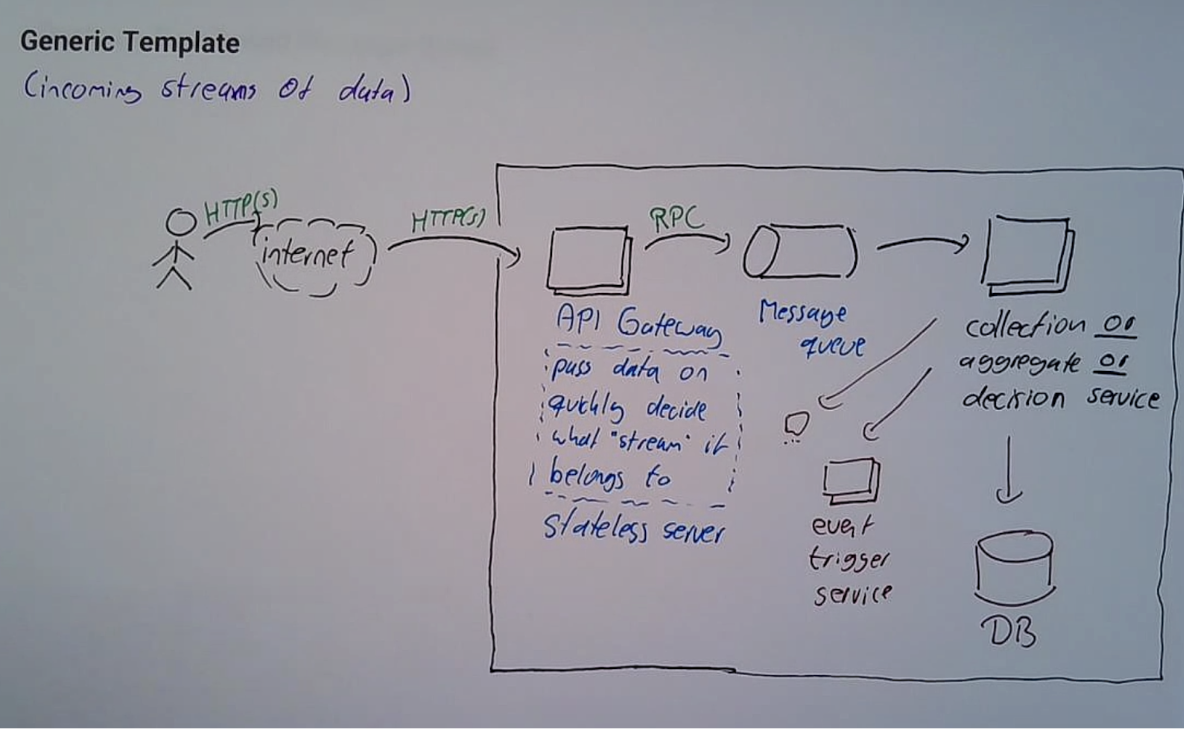 Generic Template
(incoming streams of data)
HTTP(S)
internet
HTTP(S)
RPC
API Gateway
pass data on
quickly decide
what "stream" it
belongs to
Stateless server
Message
queue
collection or
aggregate or
decision service
event
trigger
service
DB